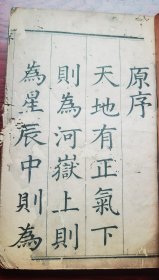 原序
天地有正氣下
則為河嶽上則
為星辰中則為